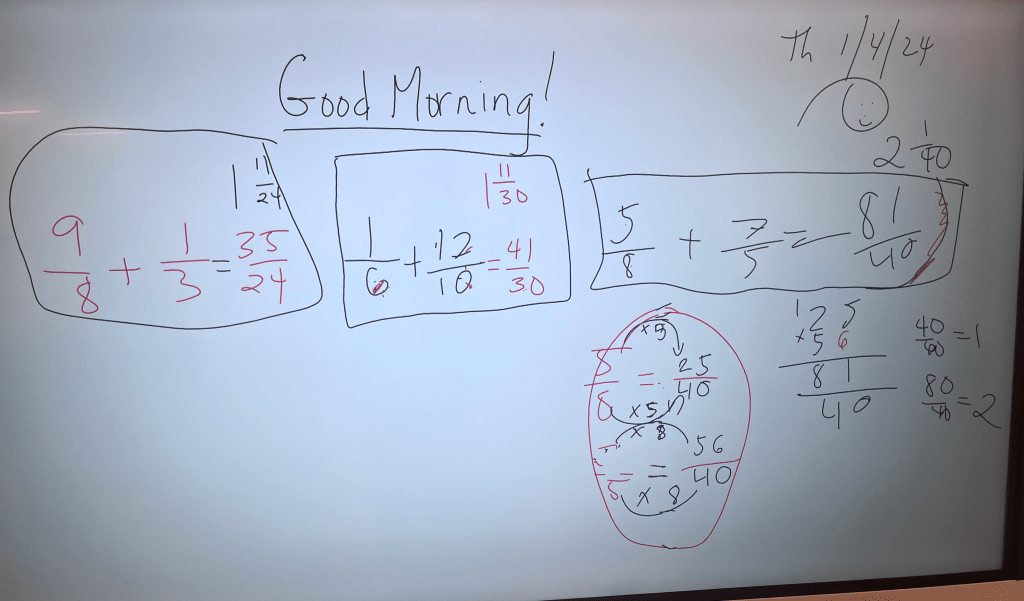 Th 1/4/24
Good Morning!
1 11/24
9/8 + 1/3 = 35/24
1 11/30
1/6 + 12/10 = 41/30
2 1/40
5/8 + 7/5 = 81/40
x5
5/8 = 25/40
x5
x 8
/5 = 56/40
x 8
1 2 5
x 5 6
8 1
4 0
40/40 = 1
80/40 = 2